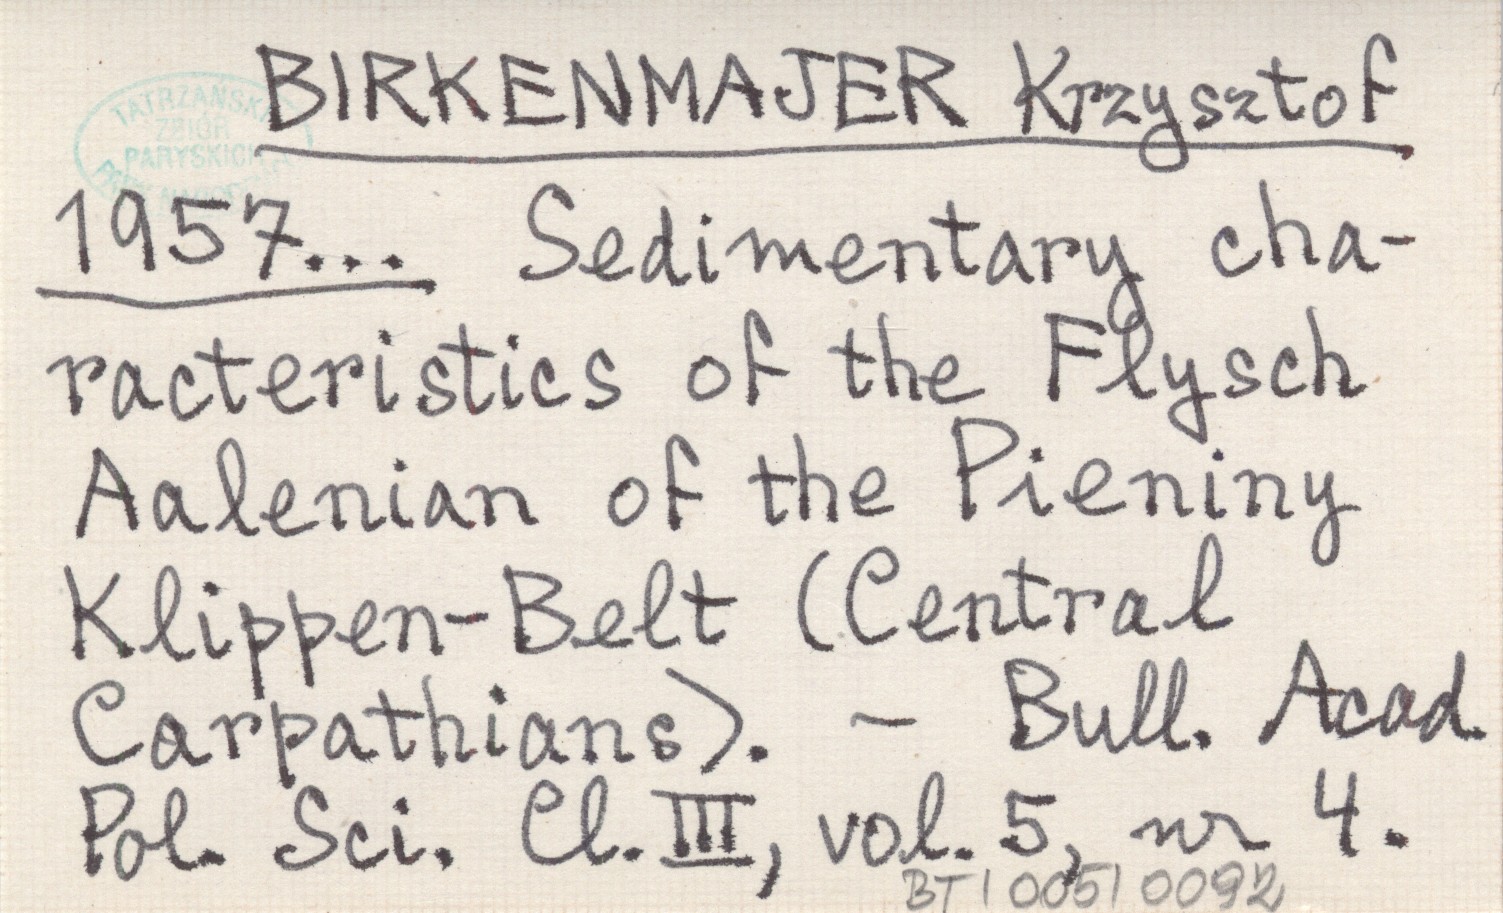 BIRKENMAJER Krzysztof
TATRZAŃSKI
ZBIÓR
PARYSKICH
1957... Sedimentary cha-
racteristics of the Flysch
Aalenian of the Pieniny
Klippen-Belt (Central
Carpathians). - Bull. Acad.
Pol. Sci. Cl. III, vol. 5, nr 4.
BT | 005 | 0092